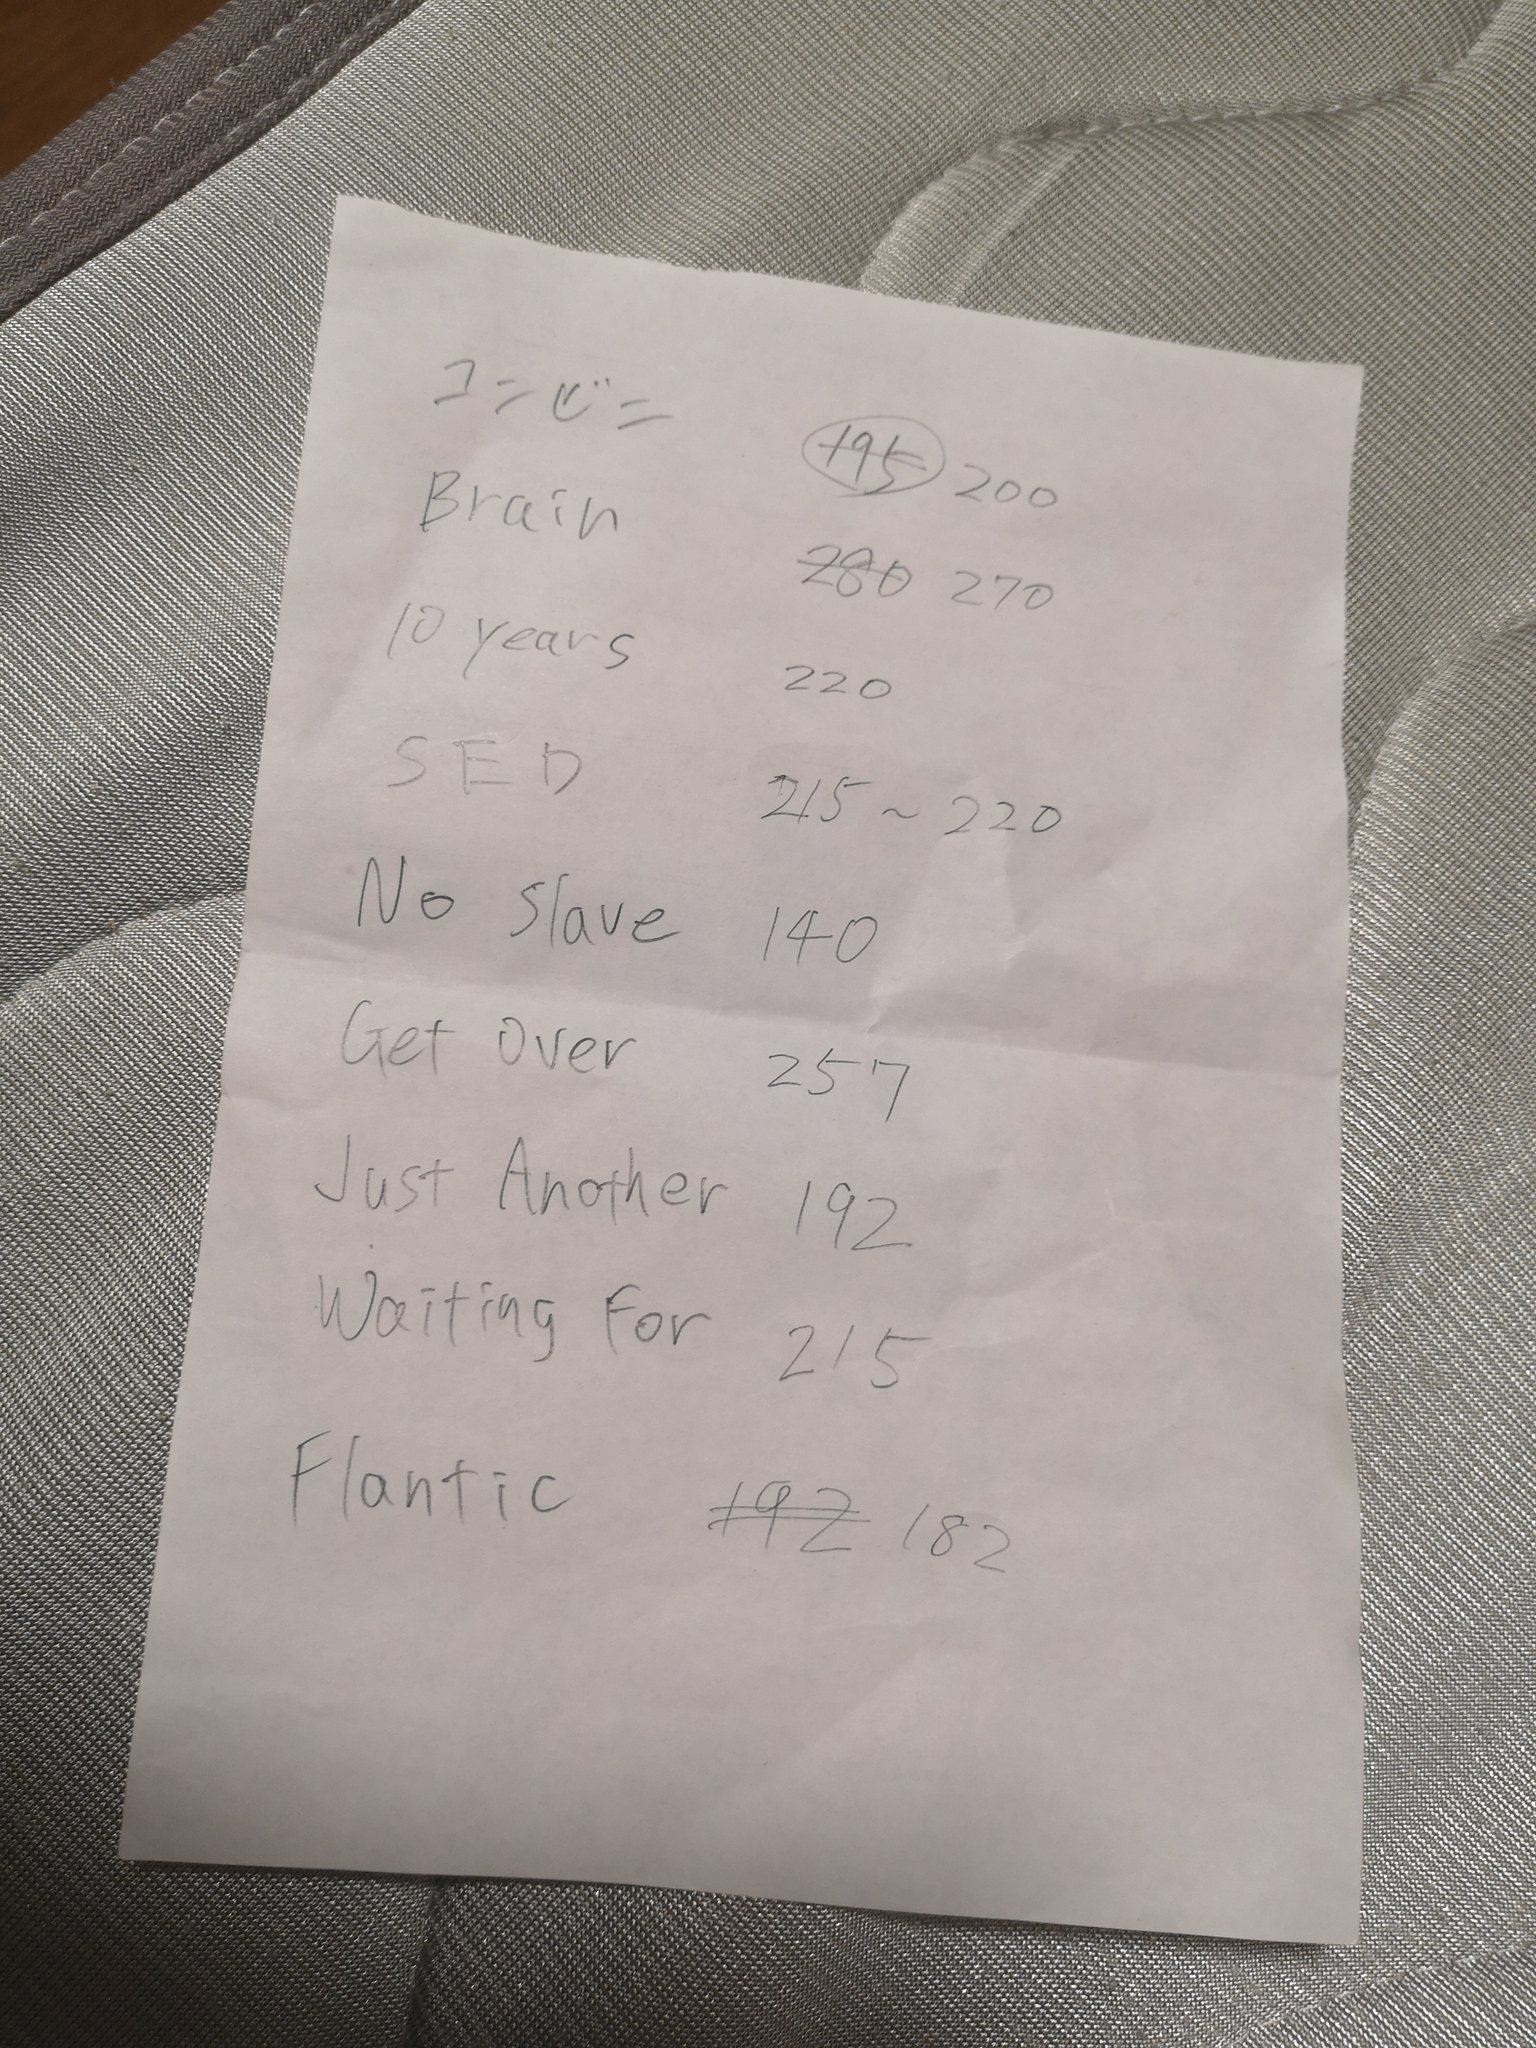 コンビニ 195 200
Brain 280 270
10 years 220
SED 215~220
No slave 140
Get over 257
Just Another 192
Waiting For 215
Flantic 192 182